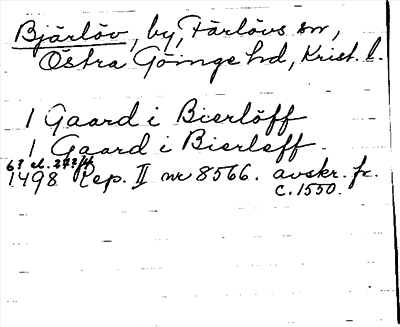 Bjärlöv, by, Färlövs sn,
Östra Göinge hd, Krist. l.
1 Gaard i Bierlöff
1 Gaard i Bierleff.
6? el. 27?/4
1498 Rep. II nr 8566. avskr. fr.
c. 1550.